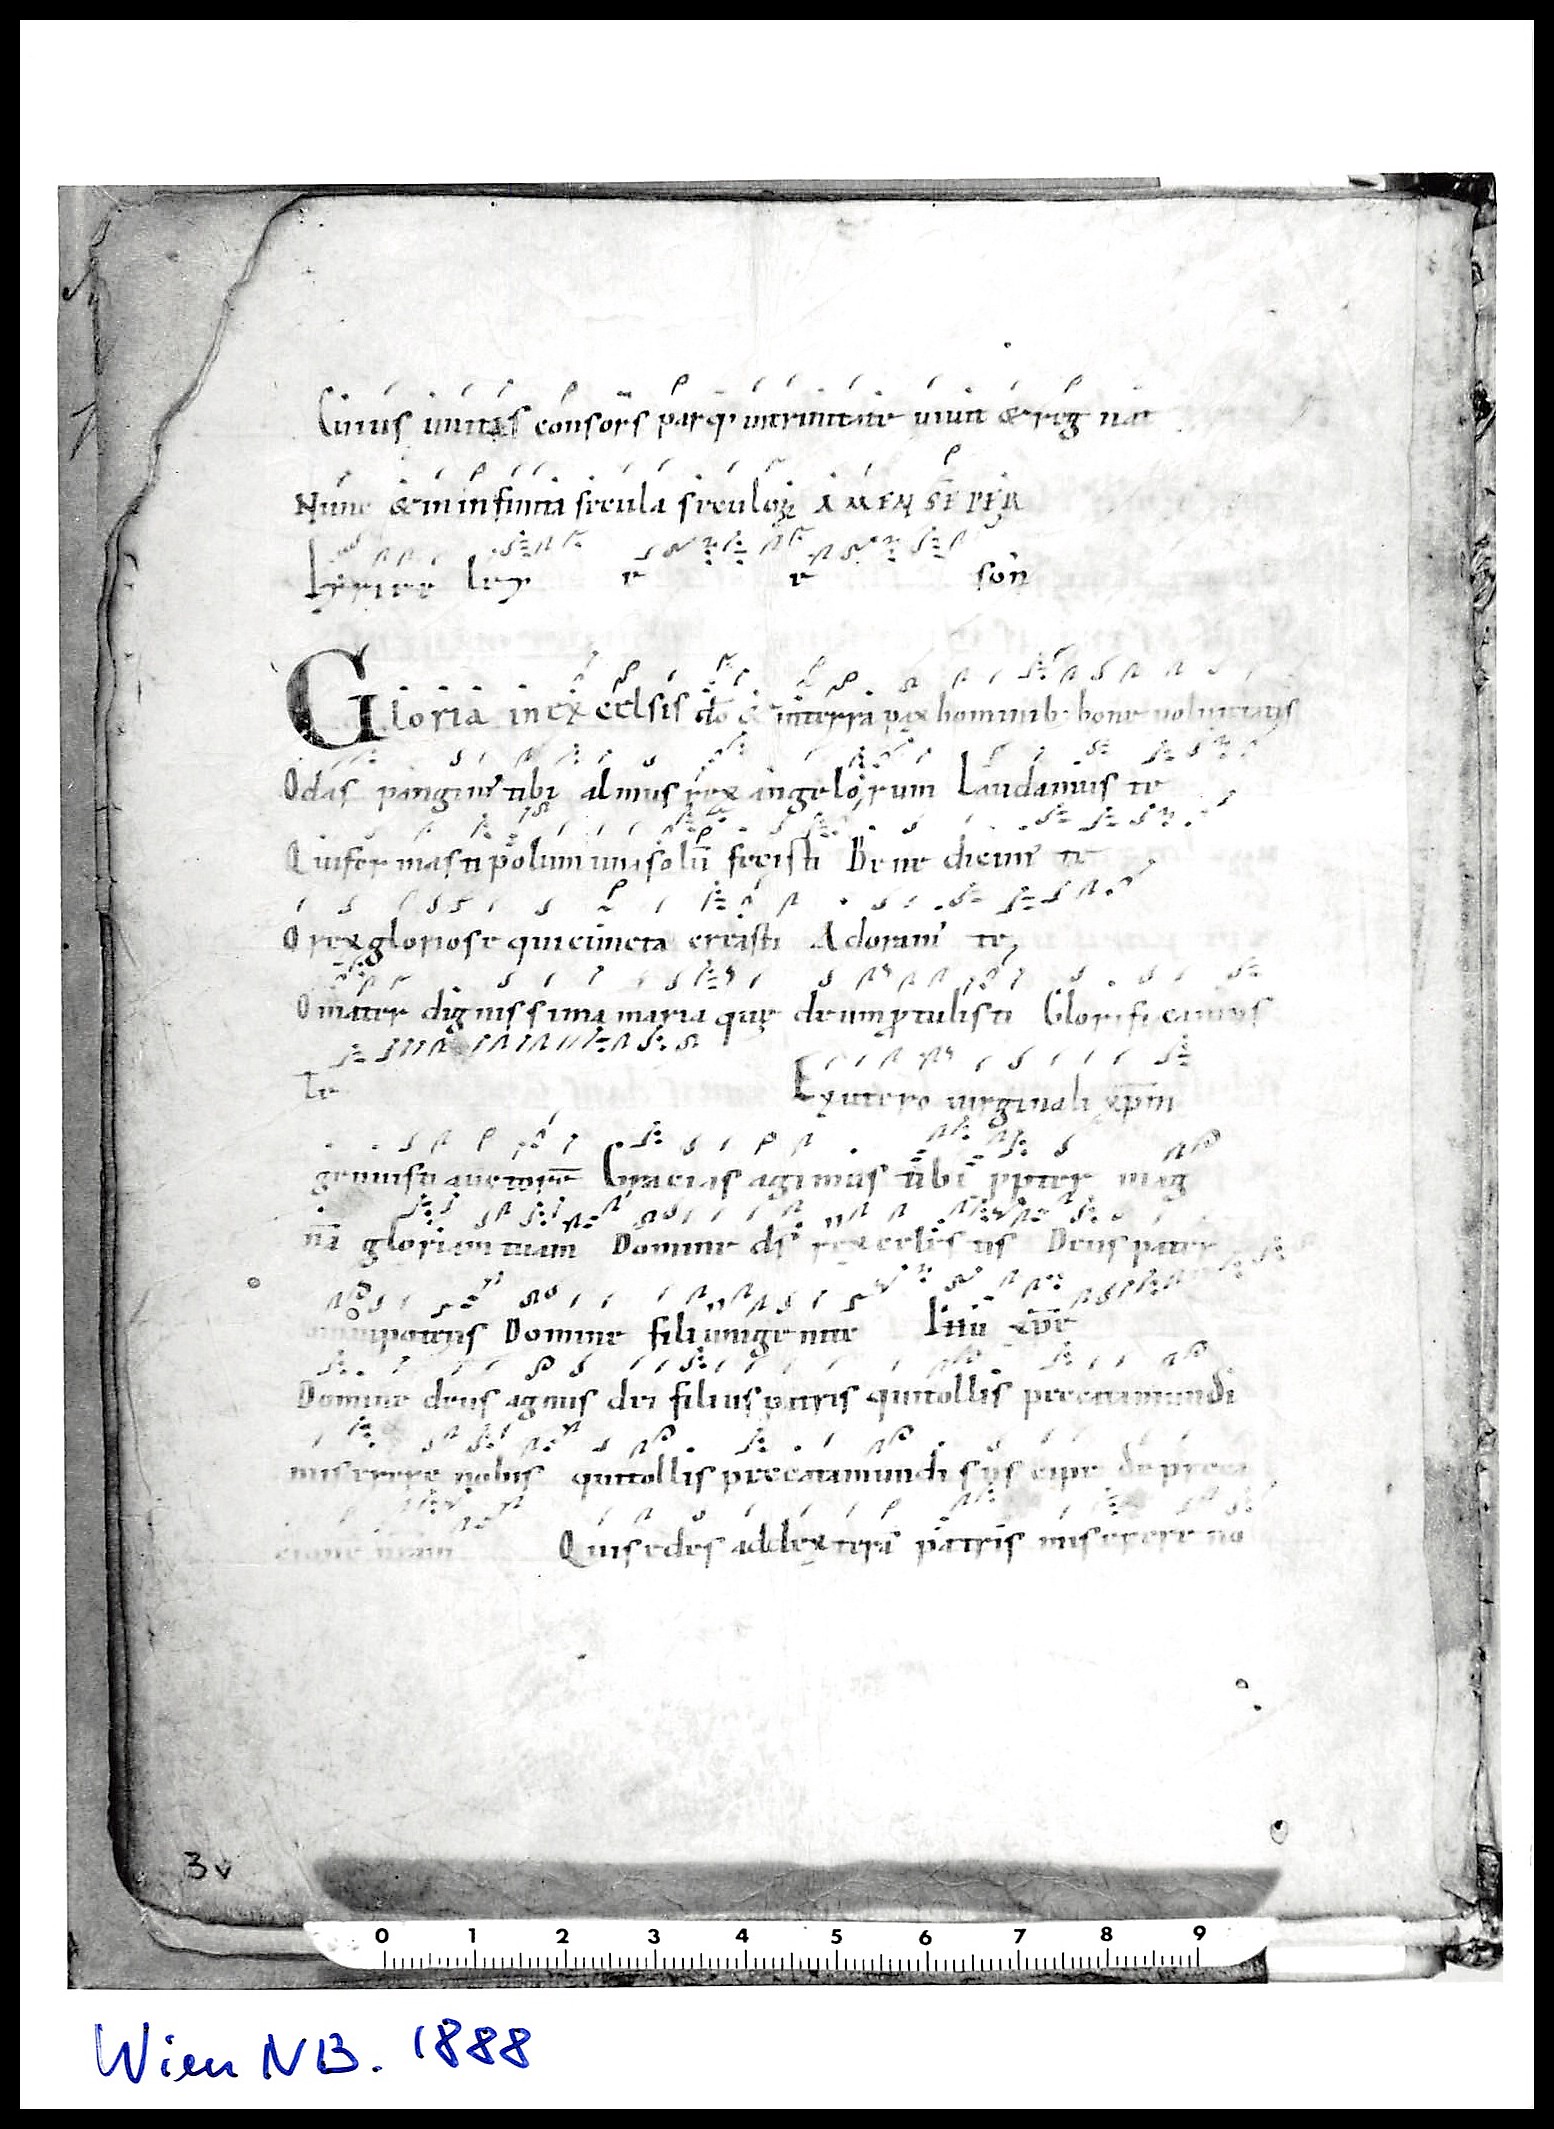 Cuius unitas consors parq; intrinitate uiuit & reg nat
Nunc & in infinita secula seculoꝝ AMEN SEPER
kyrie e ley e e son
Gloria in excelsis do & interra pax hominib; bone uoluntatis
Odas pangim tibi almus rex angelorum Laudamus te
Quifor masti polum una solu fecisti Bene dicim te
O rex gloriose qui cuncta creasti Adoram te
O mater dignissima maria quę deum ptulisti Glorificamus
te Exutero uirginali xpm
genuisti auctore Gracias agimus tibi ppter mag
na gloriam tuam Domine ds rex celes tis Deus pater
omnipotens Domine fili unige nite ihu xpe
Domine deus agnus dei filius patris quitollis peccatamundi
miserere nobis quitollis peccatamundi suscipe de preca
cione nram Quisedes addextera patris miserere no
3v
0 1 2 3 4 5 6 7 8 9
Wien NB. 1888